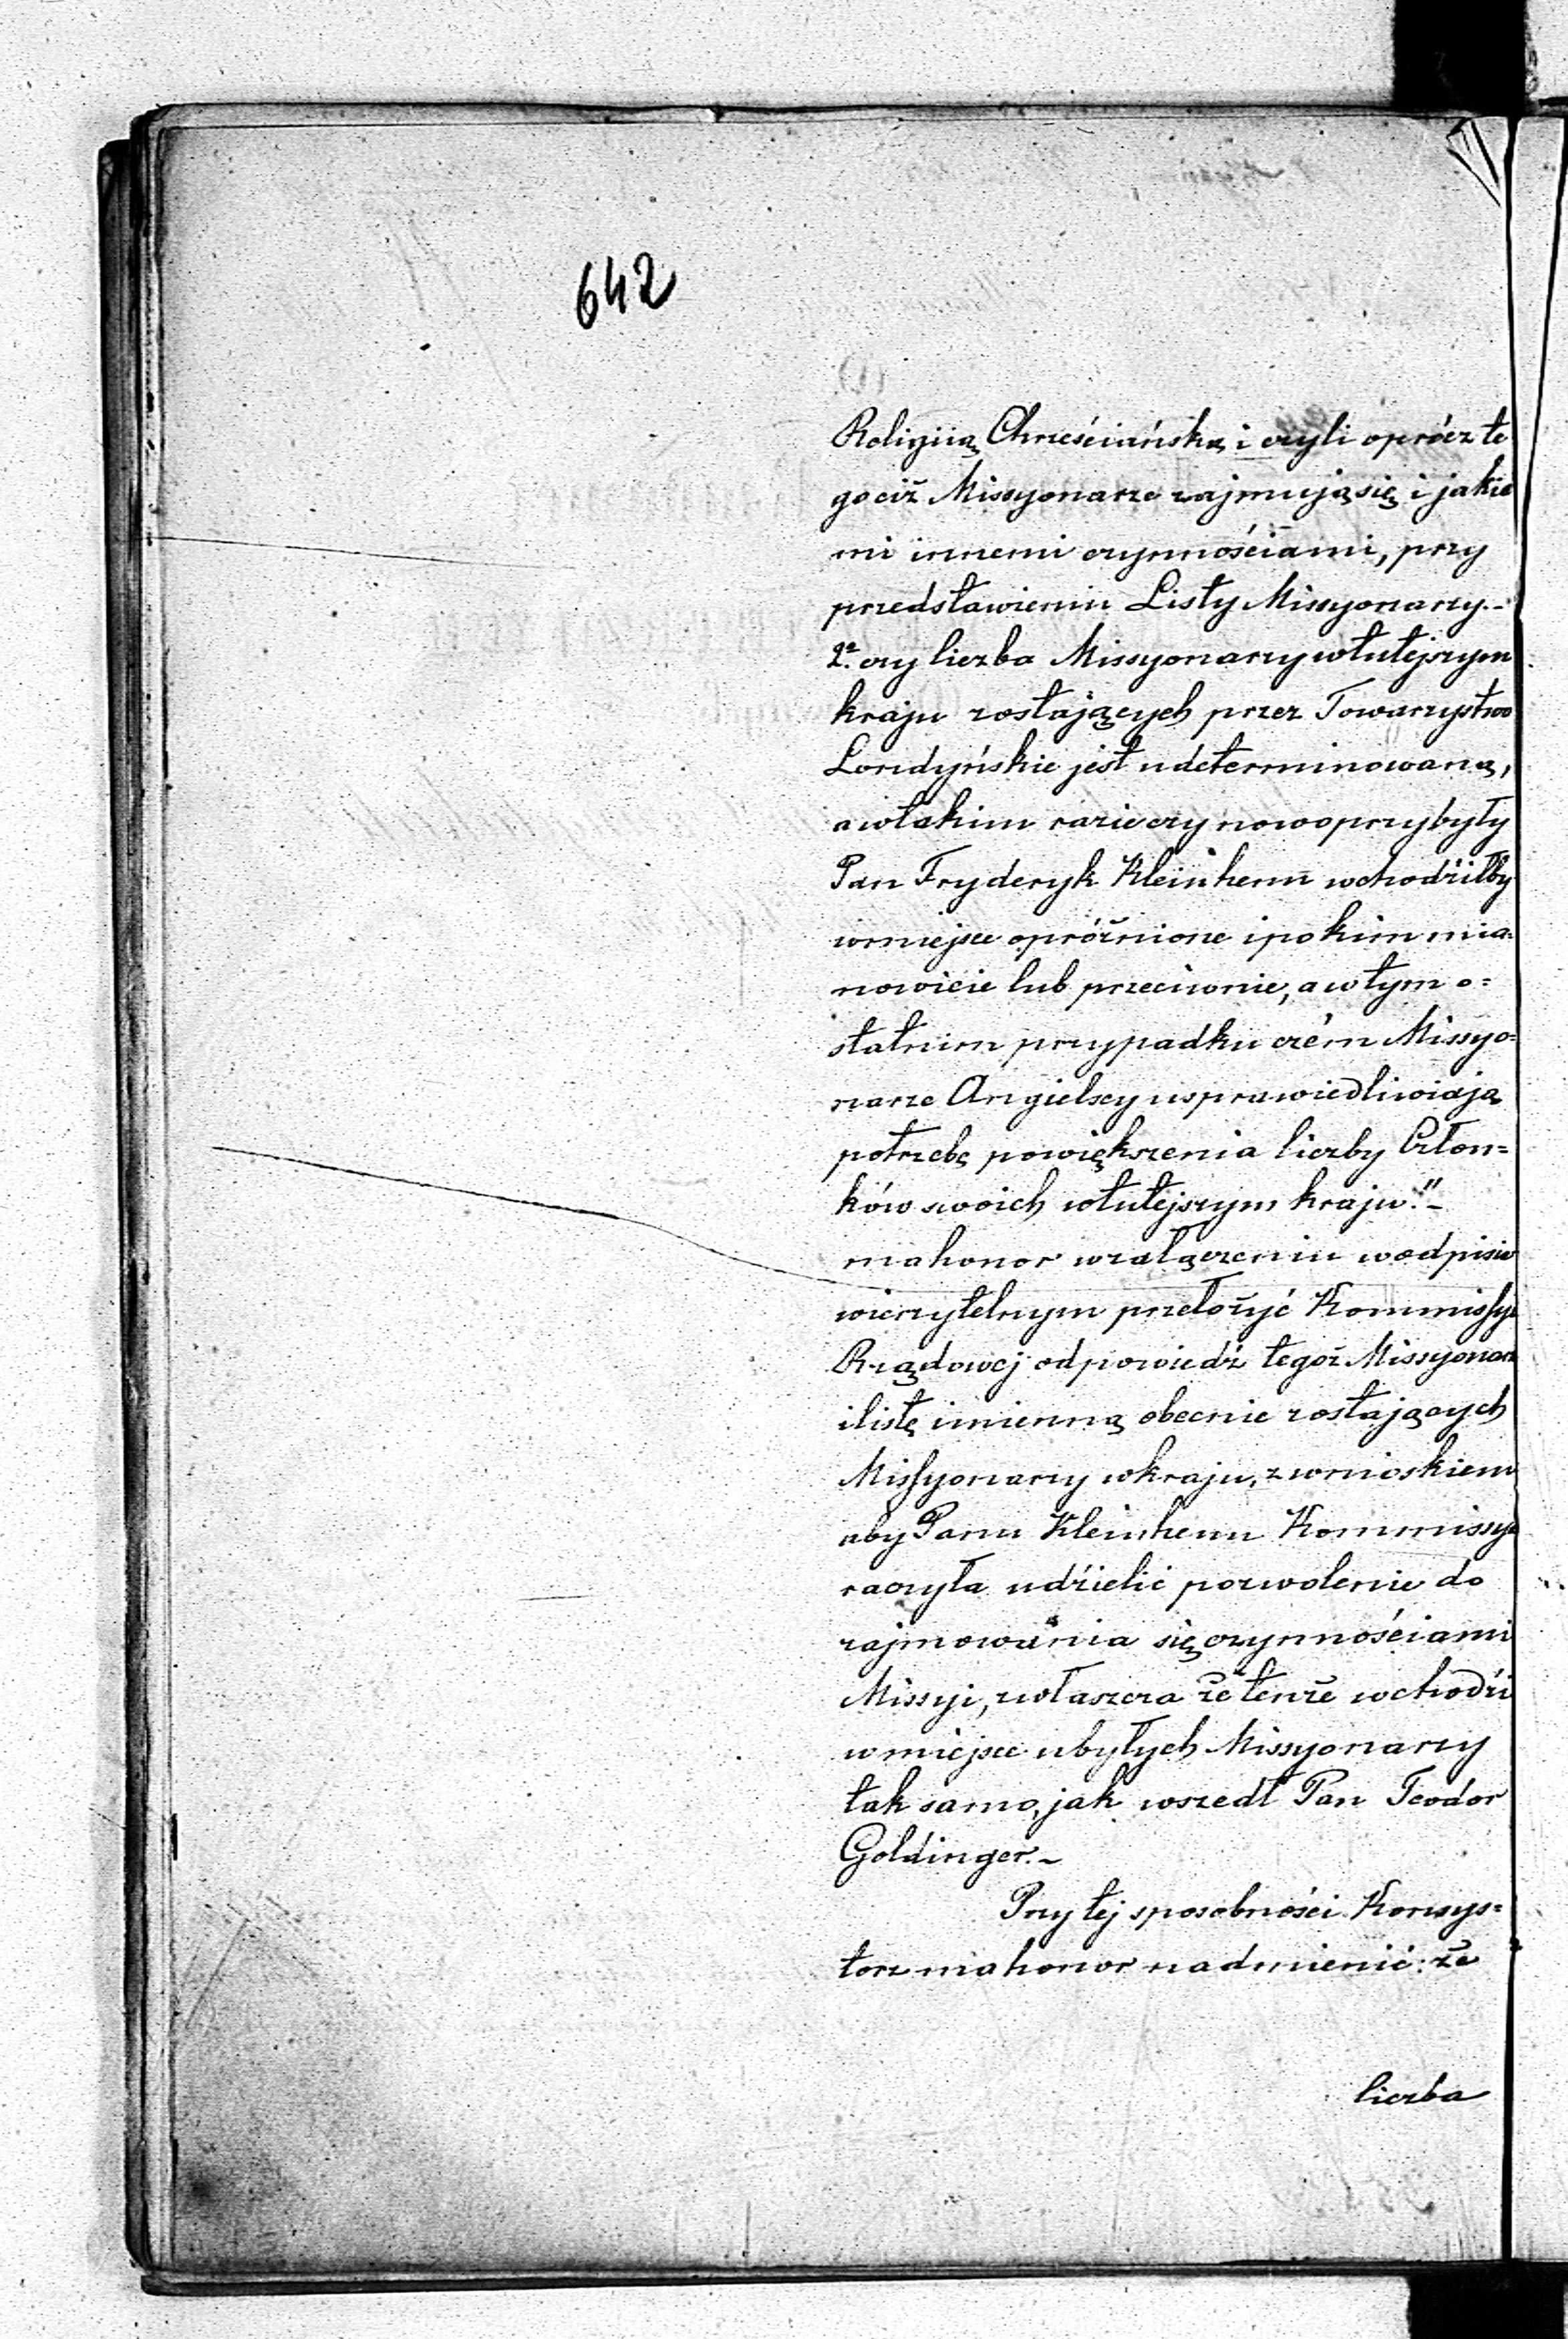 642
Religiią Chrześciańską i czyli oprócz te
gociż Missyonarze zajmują się i jakie
mi innemi czynnościami, przy
przedstawieniu Listy Missyonarzy.-
2e. czy liczba Missyonarzy w tutejszym
kraju zostających przez Towarzystwo
Londyńskie jest udeterminowaną,
a w takim razie czy nowoprzybyły
Pan Fryderyk Kleinhenn wchodziłby
w miejsce opróżnione i po kim mia=
nowicie lub przeciwnie, a w tym o=
statnim przypadku czém Missyo=
narze Angielscy usprawiedliwiają
potrzebę powiększenia liczby Człon=
ków swoich w tutejszym kraju."-
ma honor w załączeniu w odpisie
wierzytelnym przełożyć Kommissyi
Rządowej odpowiedź tegoż Missyonarz
i listę imienną obecnie zostających
Missyonarzy w kraju, z wnioskiem
aby Panu Kleinhenn Kommissya
raczyła udźielić pozwolenie do
zajmowania się czynnościami
Missyi, zwłaszcza że tenże wchodźi
w miejsce ubyłych Missyonarzy
tak samo, jak wszedł Pan Teodor
Goldinger.-
Przy tej sposobności Konsys=
torz ma honor nadmienić: że
liczba